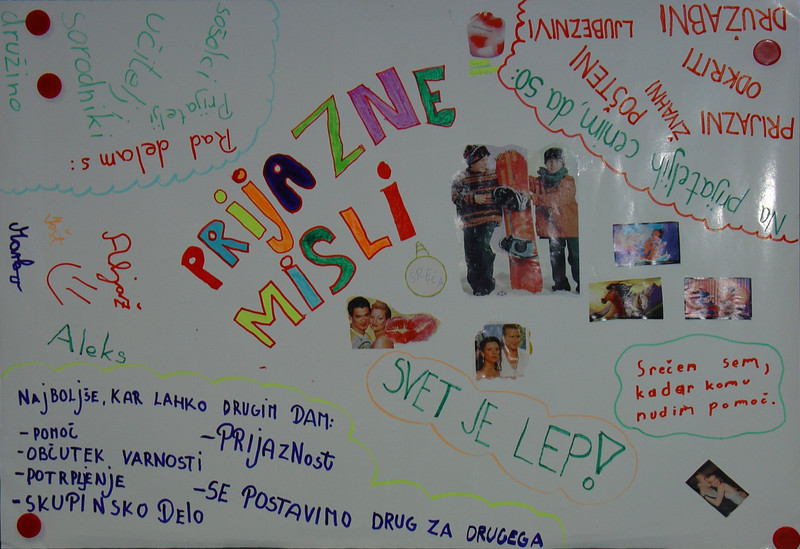 PRIJAZNE
MISLI
Rad delam s:
Prijatelji
sošolci
učitelji
sorodniki
družino
Na prijateljih cenim, da so:
PRIJAZNI
ŽIVAHNI
POŠTENI
ODKRITI
LJUBEZNIVI
DRUŽABNI
Marko
Aljaž
Aleks
SREČA
SVET JE LEP!
Srečen sem,
kadar komu
nudim pomoč.
NAJBOLJŠE, KAR LAHKO DRUGIM DAM:
-POMOČ
-OBČUTEK VARNOSTI
-POTRPLJENJE
-SKUPINSKO DELO
-PRIJAZNOST
-SE POSTAVIMO DRUG ZA DRUGEGA